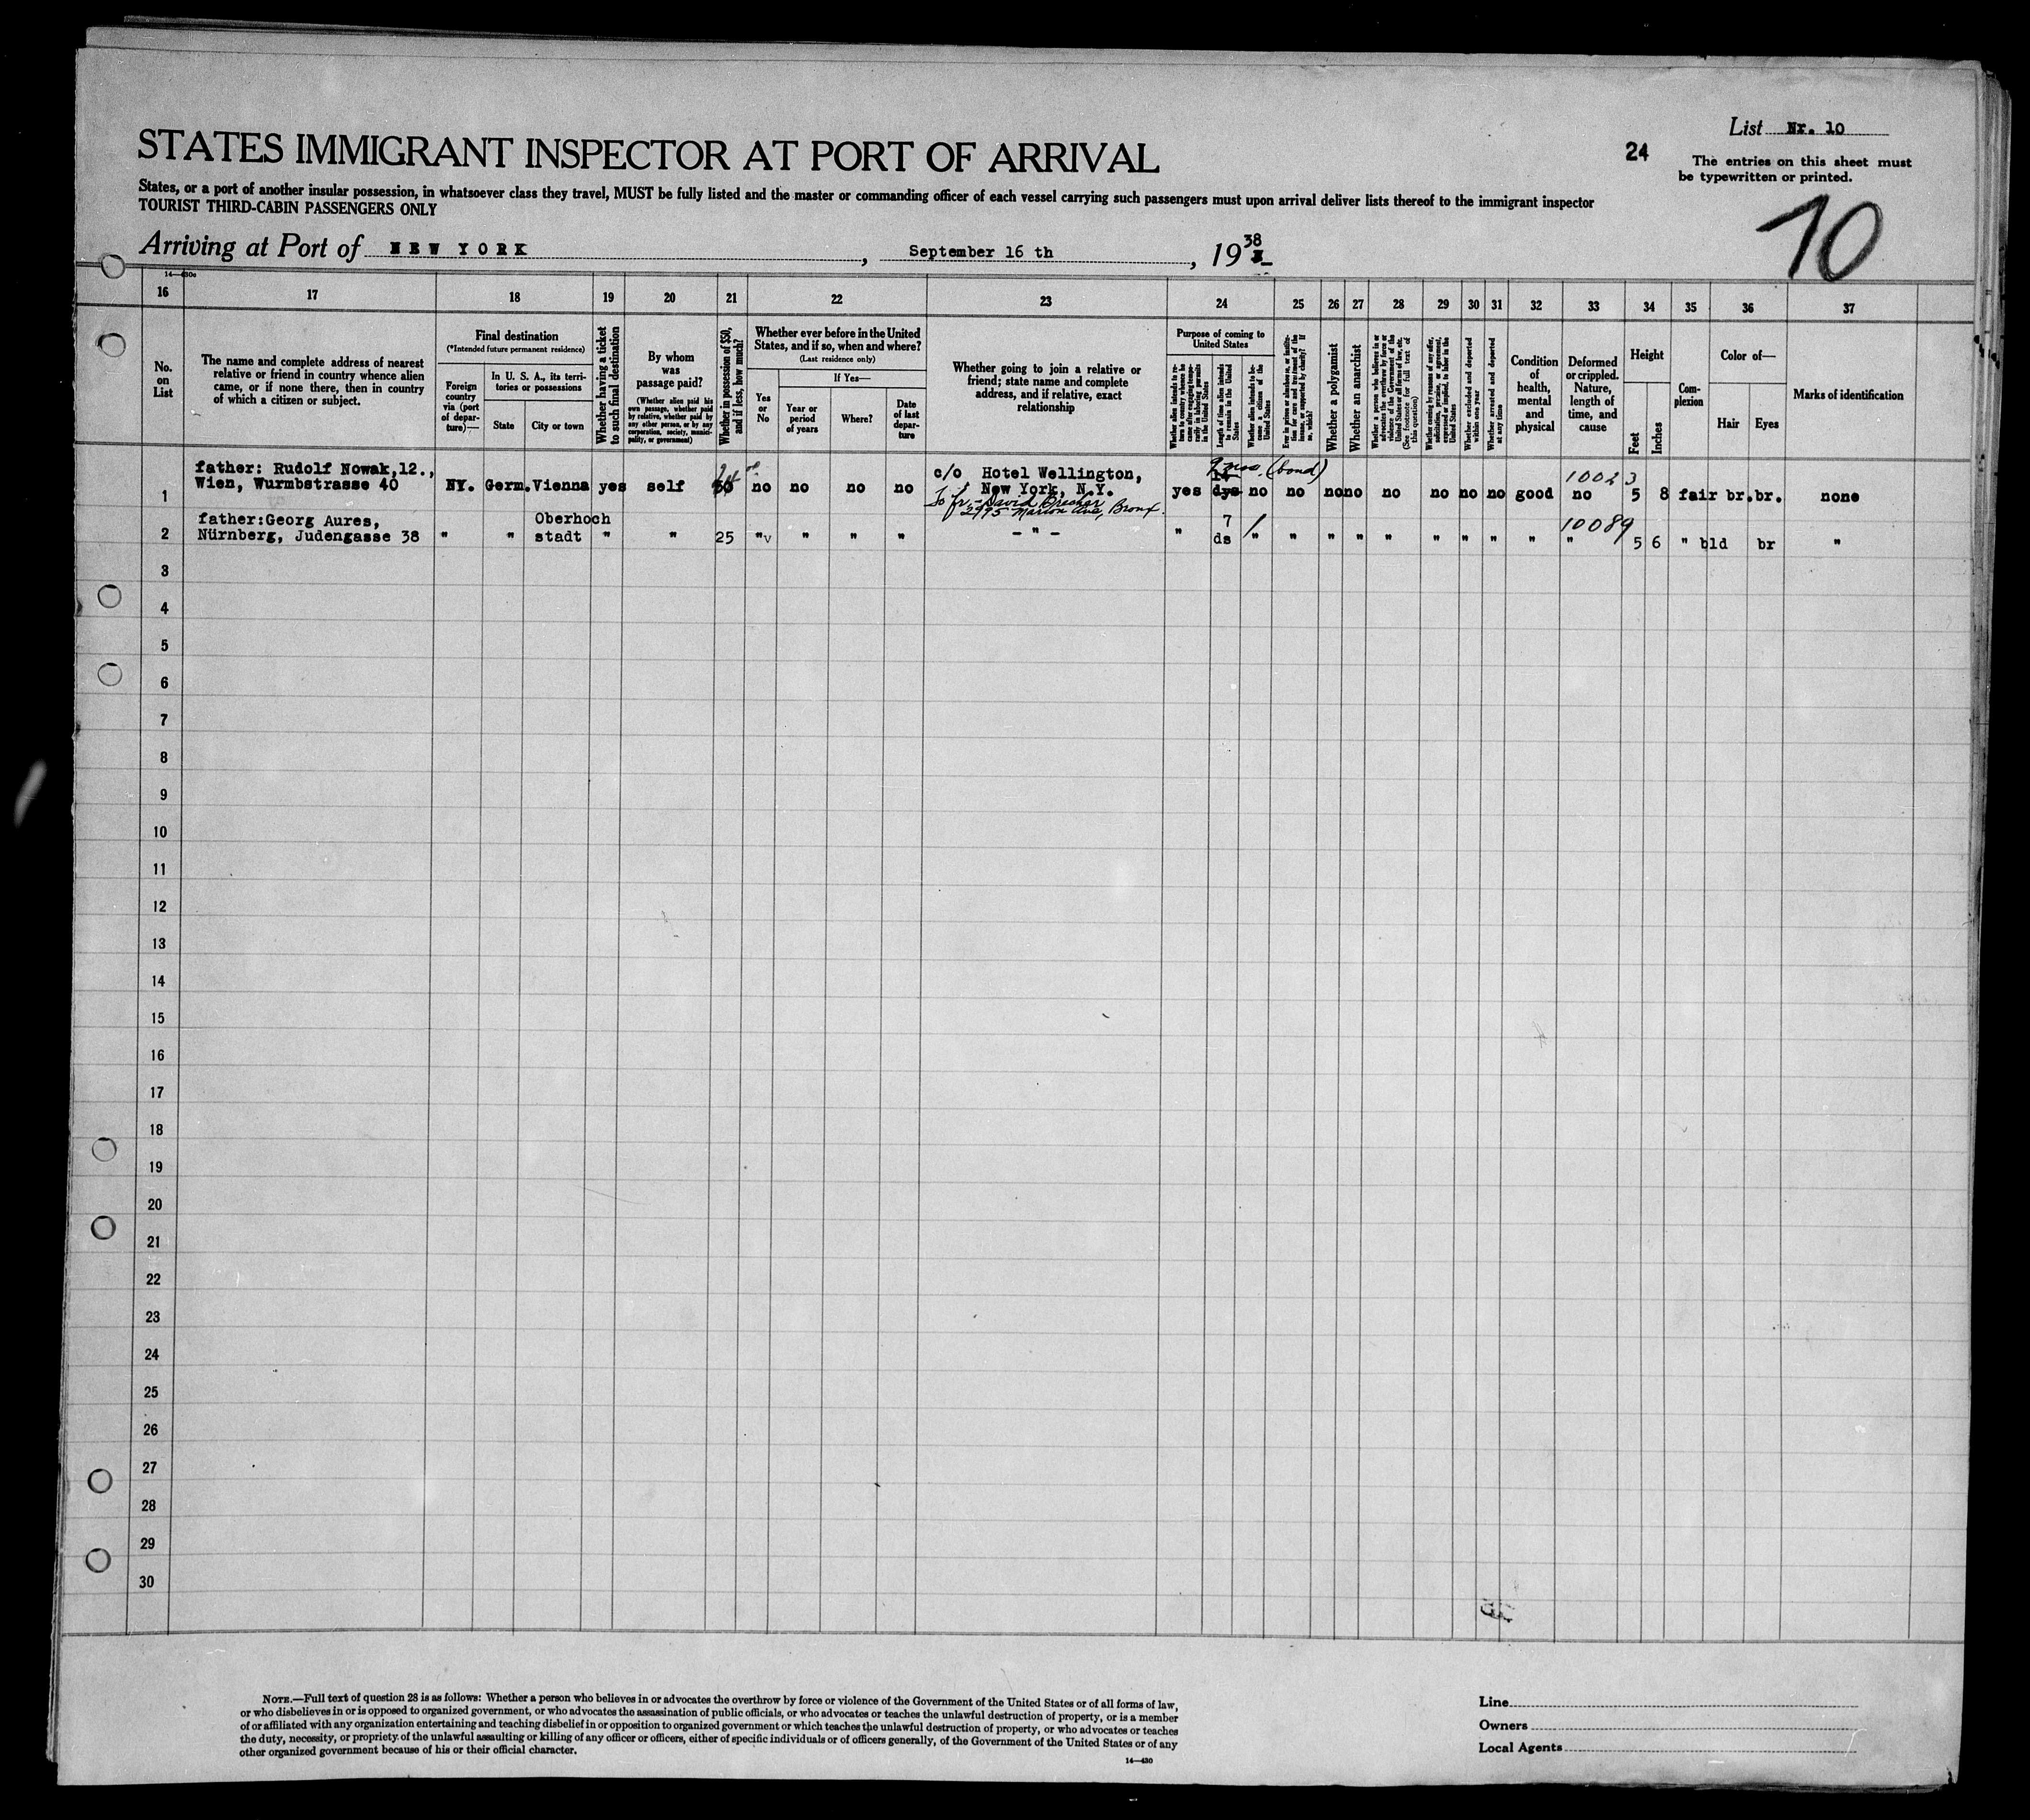 List Nr. 10
24
The entries on this sheet must
be typewritten or printed.
STATES IMMIGRANT INSPECTOR AT PORT OF ARRIVAL
States, or a port of another insular possession, in whatsoever class they travel, MUST be fully listed and the master or commanding officer of each vessel carrying such passengers must upon arrival deliver lists thereof to the immigrant inspector
TOURIST THIRD-CABIN PASSENGERS ONLY
10
Arriving at Port of NEW YORK, September 16 th, 19 38
16 17 18 19 20 21 22 23 24 25 26 27 28 29 30 31 32 33 34 35 36 37
No. on List
The name and complete address of nearest
relative or friend in country whence alien
came, or if none there, then in country
of which a citizen or subject.
Final destination
(*Intended future permanent residence)
Foreign country via (port of departure)—
In U. S. A., its territories or possessions
State
City or town
Whether having a ticket to such final destination
By whom was passage paid?
(Whether alien paid his own passage, whether paid by relative, whether paid by any other person, or by any corporation, society, municipality, or government)
Whether in possession of $50, and if less, how much?
Whether ever before in the United
States, and if so, when and where?
(Last residence only)
Yes or No
If Yes—
Year or period of years
Where?
Date of last departure
Whether going to join a relative or
friend; state name and complete
address, and if relative, exact
relationship
Purpose of coming to United States
Whether alien intends to return to country whence he came after engaging temporarily in laboring pursuits in the United States
Length of time alien intends to remain in the United States
Whether alien intends to become a citizen of the United States
Ever in prison or almshouse, or institution for care and treatment of the insane, or supported by charity? If so, which?
Whether a polygamist
Whether an anarchist
Whether a person who believes in or advocates the overthrow by force or violence of the Government of the United States or all forms of law, etc. (See footnote for full text of this question)
Whether coming by reason of any offer, solicitation, promise, or agreement, expressed or implied, to labor in the United States
Whether excluded and deported within one year
Whether arrested and deported at any time
Condition of health, mental and physical
Deformed or crippled. Nature, length of time, and cause
Height
Feet
Inches
Complexion
Color of—
Hair
Eyes
Marks of identification
father: Rudolf Nowak, 12.,
1 Wien, Wurmbstrasse 40 NY. Germ. Vienna yes self no no no no c/o Hotel Wellington,
New York, N.Y.
To fr - David
2995 Marion Ave, Bronx.
yes 2 mos. (bond) 14 dys no no no no no no no no good 10023 no 5 8 fair br. br. none
father: Georg Aures,
2 Nürnberg, Judengasse 38 " " Oberhoch
stadt " " 25 "v " " " - " - " 7 ds " " " " " " " " " 10089 " 5 6 " bld br "
3
4
5
6
7
8
9
10
11
12
13
14
15
16
17
18
19
20
21
22
23
24
25
26
27
28
29
30
NOTE.—Full text of question 28 is as follows: Whether a person who believes in or advocates the overthrow by force or violence of the Government of the United States or of all forms of law,
or who disbelieves in or is opposed to organized government, or who advocates the assassination of public officials, or who advocates or teaches the unlawful destruction of property, or is a member
of or affiliated with any organization entertaining and teaching disbelief in or opposition to organized government or which teaches the unlawful destruction of property, or who advocates or teaches
the duty, necessity, or propriety of the unlawful assaulting or killing of any officer or officers, either of specific individuals or of officers generally, of the Government of the United States or of any
other organized government because of his or their official character.
14—430
Line
Owners
Local Agents